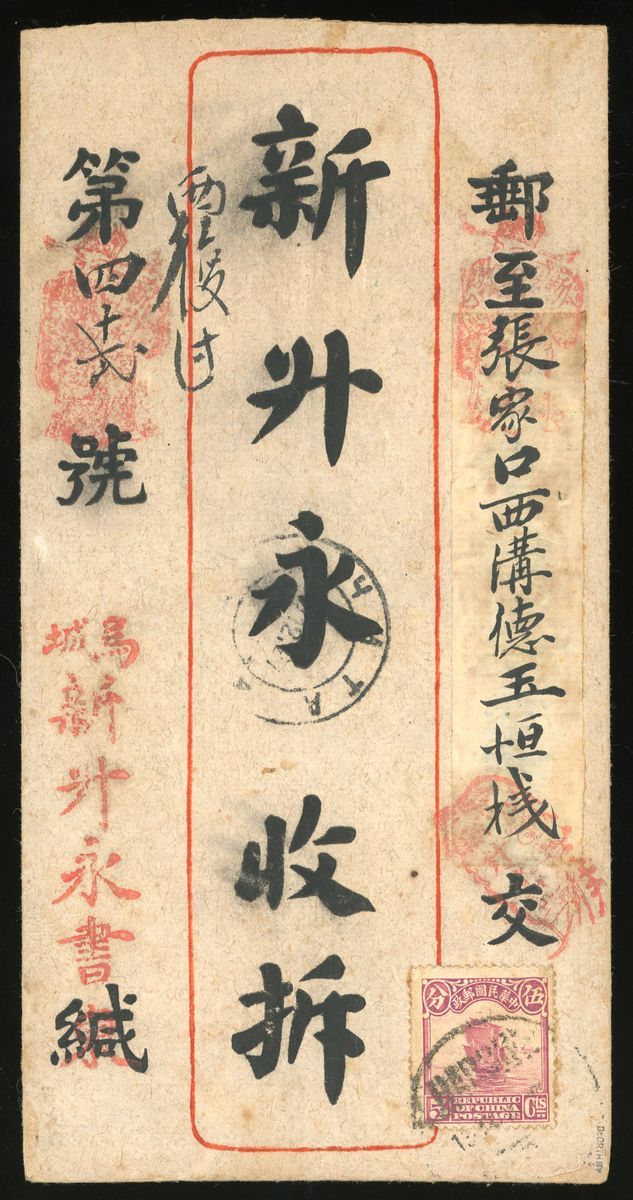 郵至張家口西溝德玉恒棧交
新升永收拆
第四十弍號
烏城
新升永書
緘
中華民國郵政
伍分
5 Cts
REPUBLIC
OF CHINA
POSTAGE